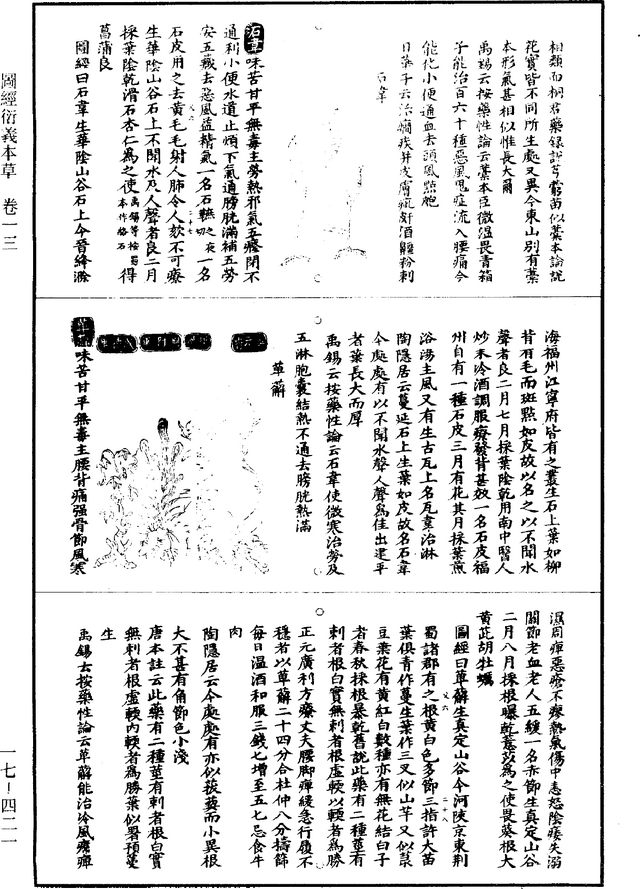 圖經衍義本草 卷一三
相類而桐君藥錄說芎藭苗似藁本論說
花實皆不同所生處又異今東山別有藁
本形氣甚相似惟長大爾
禹錫云按藥性論云藁本臣微溫畏青葙
子能治一百六十種惡風鬼疰流入腰痛冷
能化小便通血去頭風䵟皰
日華子云治癇疾并皮膚疵皯酒齇粉刺
石韋
石韋味苦甘平無毒主勞熱邪氣五癃閉不
通利小便水道止煩下氣通膀胱滿補五勞
安五藏去惡風益精氣一名石䩾一名
石皮用之去黃毛毛射人肺令人欬不可療
生華陰山谷石上不聞水及人聲者良二月
採葉陰乾滑石杏仁為之使得
菖蒲良
圖經曰石韋生華陰山谷石上今晉絳滁
海福州江寧府皆有之叢生石上葉如柳
背有毛而斑點如皮故以名之以不聞水
聲者良二月七月採葉陰乾用南中醫人
炒末冷酒調服療發背甚效一名石皮福
州自有一種石皮三月有花其月採葉煎
浴湯主風又有生古瓦上名瓦韋治淋
陶隱居云蔓延石上生葉如皮故名石韋
今處處有以不聞水聲人聲為佳出建平
者葉長大而厚
禹錫云按藥性論云石韋使微寒治勞及
五淋胞囊結熱不通去膀胱熱滿
萆薢
味苦甘平無毒主腰背痛強骨節風寒
濕周痺惡瘡不瘳熱氣傷中恚怒陰痿失溺
關節老血老人五緩一名赤節生真定山谷
二月八月採根曝乾薏苡為之使畏葵根大
黃茈胡牡蠣
圖經曰萆薢生真定山谷今河陝京東荊
蜀諸郡有之根黃白色多節三指許大苗
葉俱青作蔓生葉作三叉似山芋又似菉
豆葉花有黃紅白數種亦有無花結白子
者春秋採根曝乾舊說此藥有二種莖有
刺者根白實無刺者根虛軟以軟者為勝
正元廣利方療丈夫腰脚痺緩急行履不
穩者以萆薢二十四分合杜仲八分擣篩
每日溫酒和服三錢七增至五七忌食牛
肉
陶隱居云今處處有亦似菝葜而小異根
大不甚有角節色小淺
唐本註云此藥有二種莖有刺者根白實
無刺者根虛軟內軟者為勝葉似署預蔓
生
禹錫云按藥性論云萆薢能治冷風㿏痺
一七-四二一